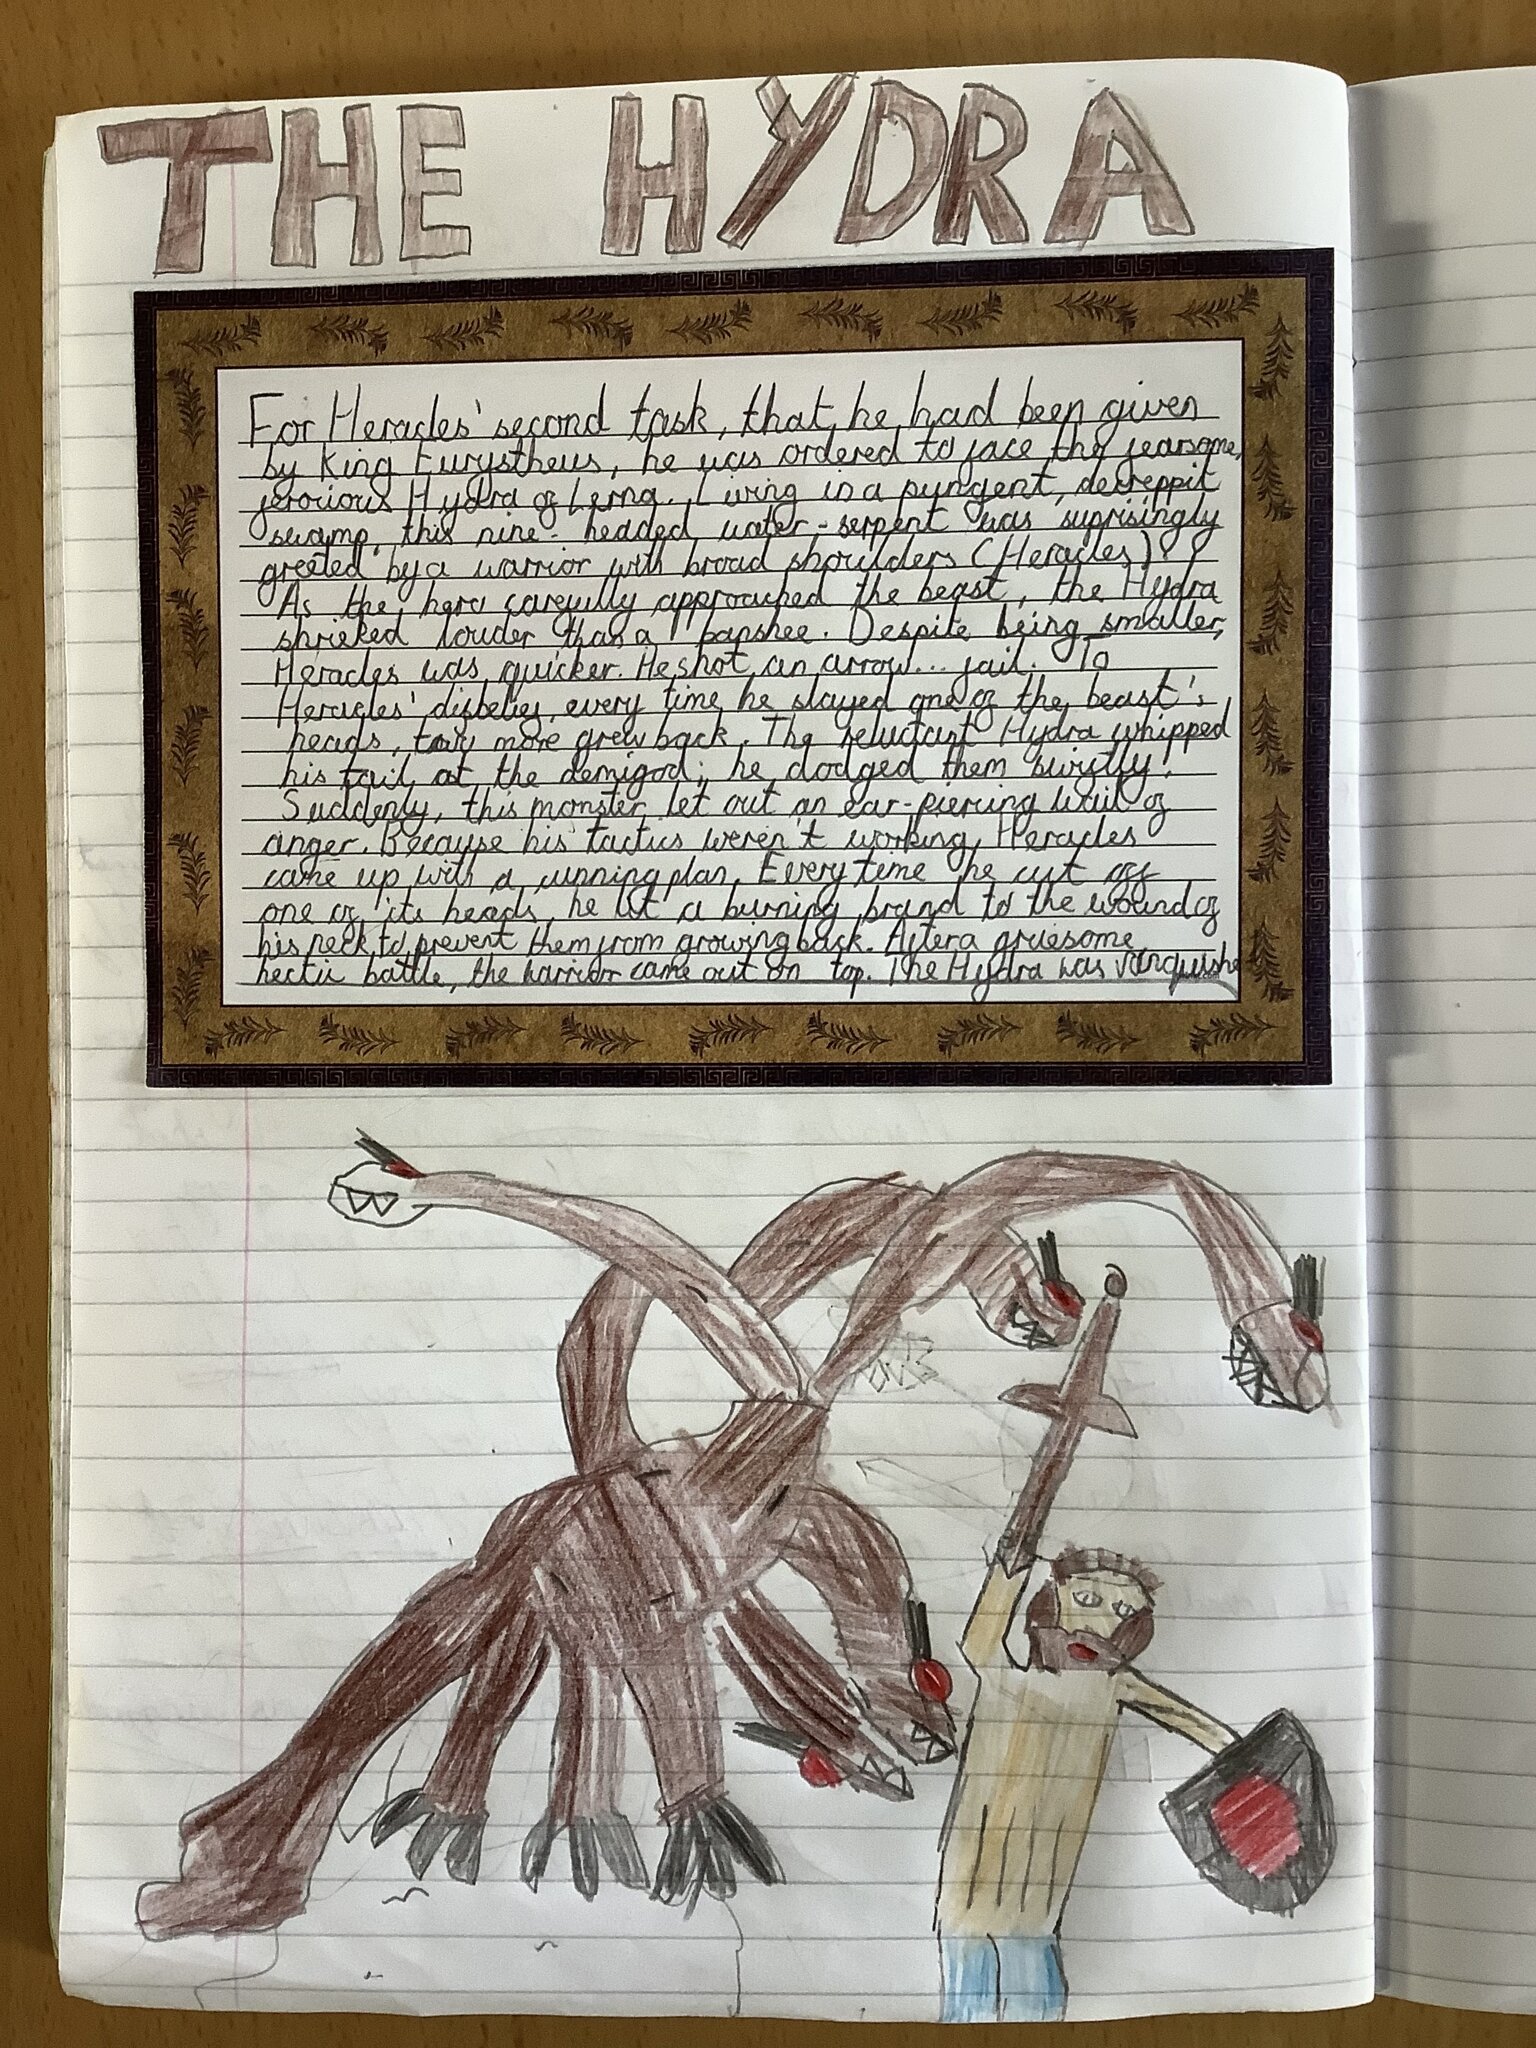 THE HYDRA
For Heracles' second task, that he had been given
by King Eurystheus, he was ordered to face the fearsome,
ferocious Hydra of Lerna. Living in a pungent, decreppit
swamp, this nine-headed water-serpent was suprisingly
greeted by a warrior with broad shoulders (Heracles)!
As the hero carefully approached the beast, the Hydra
shrieked louder than a banshee. Despite being smaller,
Heracles was quicker. He shot an arrow... fail. To
Heracles' disbelief, every time he slayed one of the beast's
heads, two more grew back. The reluctant Hydra whipped
his tail at the demigod; he dodged them swiftly!
Suddenly, this monster let out an ear-piercing wail of
anger. Because his tactics weren't working, Heracles
came up with a cunning plan. Every time he cut off
one of its heads, he lit a burning brand to the wound of
his neck to prevent them from growing back. After a gruesome,
hectic battle, the warrior came out on top. The Hydra was vanquishe